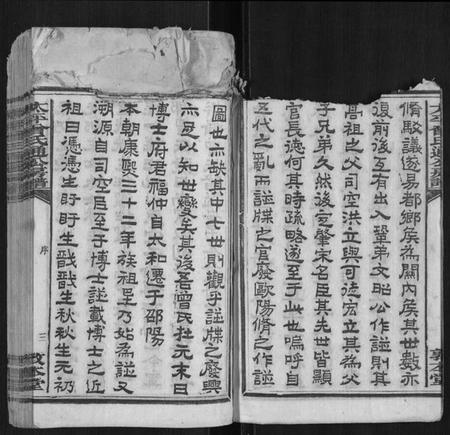 脩駁議遂易都鄉矦為關內矦其世數亦
復前後互有出入鞏弟文昭公作譜則其
高祖之父司空洪立與可徒宏立其為父
子兄弟久然後定肇宋名臣其先世皆顯
官長德何其時疏略遂至于此也嗚呼自
五代之亂而譜牒之官廢歐陽脩之作譜
圖也亦缺其中七世則觀乎譜牒之廢興
亦足以知世變矣其後吾曾氏杜元末日
博士府君福仲自太和遷于邵陽
本朝康熙三十二年族祖呈乃始為譜又
溯源自司空居至于博士譜載博士之近
祖曰憑憑生盱盱生戩戩生秋秋生元初
序
三
敦本堂